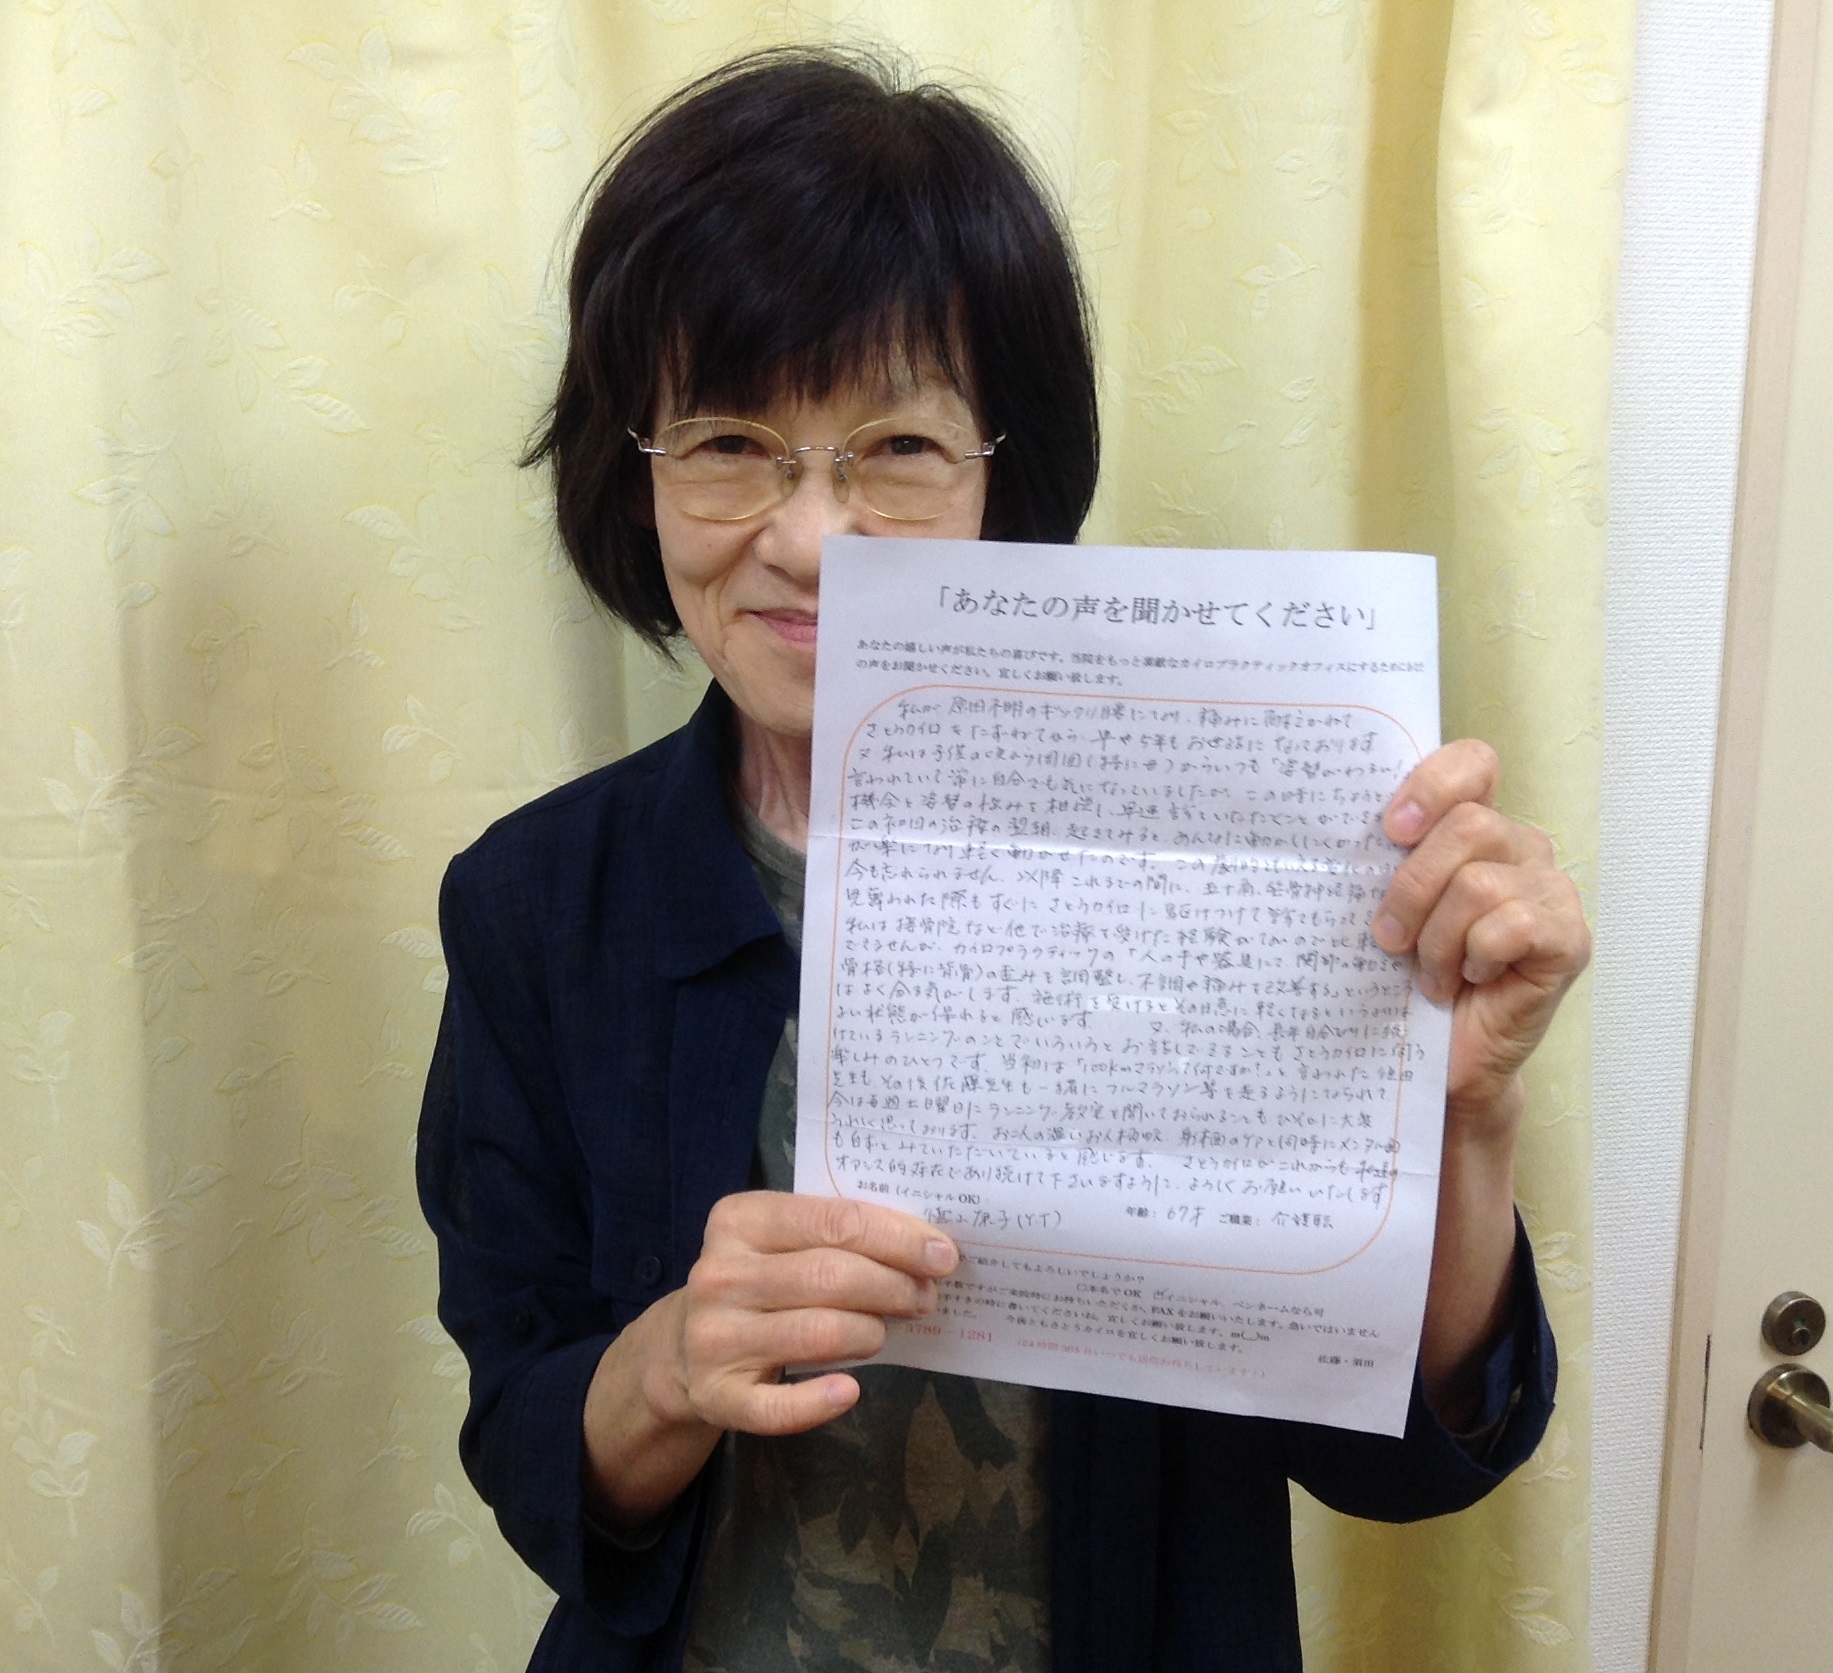 「あなたの声を聞かせてください」
あなたの嬉しい声が私たちの喜びです。当院をもっと素敵なカイロプラクティックオフィスにするためにあなた
の声をお聞かせください。宜しくお願い致します。
私が原因不明のギックリ腰になり、痛みに耐えかねて
さとうカイロをたずねてから、早や5年もお世話になっております
又、私は子供の頃より周囲(特に母)からいつも「姿勢がわるい!」
言われていて常に自分でも気になっていましたが、この時にちょうど
機会と姿勢の悩みを相談し、早速診ていただくことができ
この初回の治療の翌朝、起きてみると、あんなに動かしにくかった
が楽になり軽く動かせたのです。この劇的ともいえる変化の
今も忘れられません。以降これまでの間に、五十肩、坐骨神経痛
見舞われた際もすぐにさとうカイロに駆けつけて診てもらって
私は接骨院など他で治療を受けた経験がないので比較
できませんが、カイロプラクティックの「人の手や器具にて、関節の動きや
骨格(特に背骨)の歪みを調整し、不調や痛みを改善する」というところ
はよく分る気がします。施術を受けるとその日急に軽くなるというよりは
よい状態が保れると感います。 又、私の場合、長年自分なりに続
けているランニングのことでいろいろとお話しできることもさとうカイロに伺う
楽しみのひとつです。当初は「100kmマラソンって何ですか?」と言われた須田
先生も、その後佐藤先生も一緒にフルマラソン等を走るようになられて
今は毎週土曜日にランニング教室を開いておられることもひそかに大変
うれしく思っております。お二人の温いお人柄故、身体面のケアと同時にメンタル面
も自ずとみていただいていると感じます。 さとうカイロがこれからも私達の
オアシス的存在であり続けて下さいますように、よろしくお願いいたします
お名前(イニシャルOK):
子(Y.T) 年齢: 67才 ご職業: 介護職
ご紹介してもよろしいでしょうか?
□本名でOK ☑イニシャル、ペンネームなら可
手数ですがご来院時にお持ちいただくか、FAXをお願いいたします。急いではいません
手すきの時に書いてくださいね。宜しくお願い致します。m(__)m
ました。 今後ともさとうカイロを宜しくお願い致します。
3789-1281 (24時間365日いつでも送信お待ちしています!)
佐藤・須田